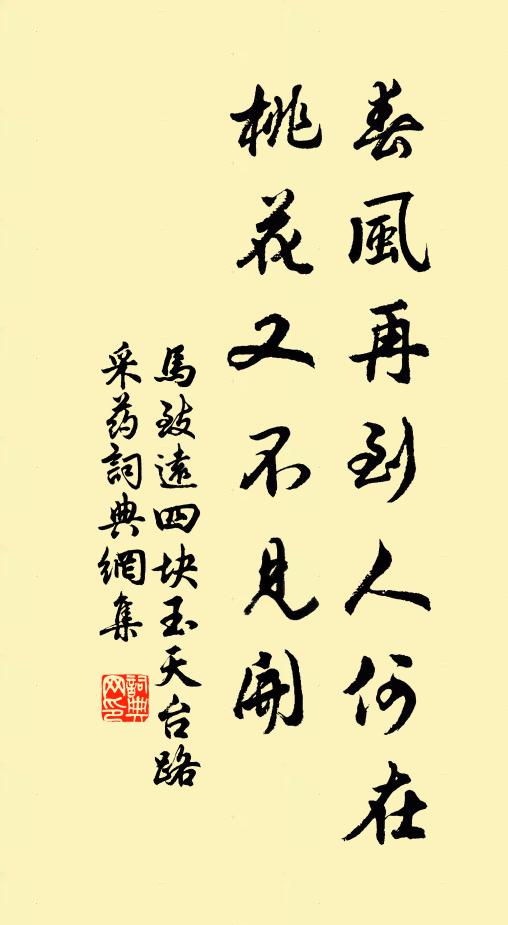 春風再到人何在
桃花又不見開
馬致遠四块玉天台路
采药詞典網集
詞典网印